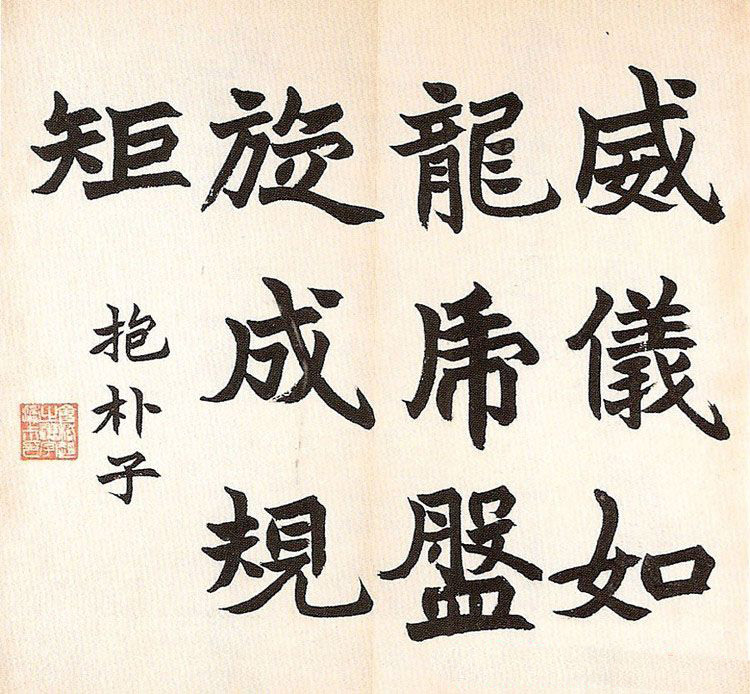 威儀如
龍乕盤
旋成規
矩
抱朴子